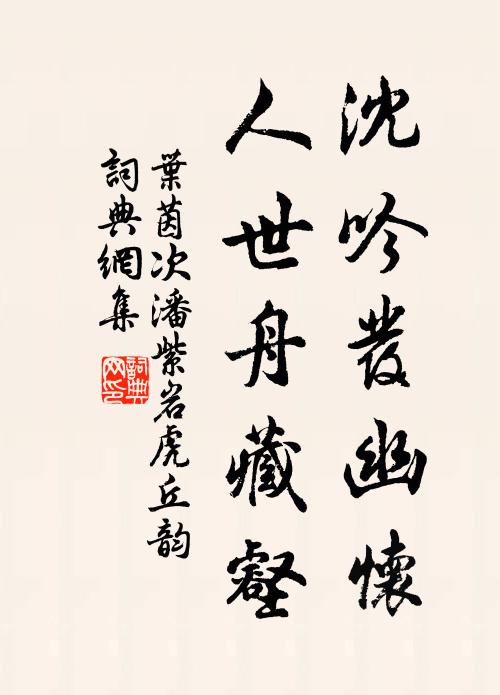 沈吟發幽懷
人世舟藏壑
葉茵次潘紫岩虎丘韵
詞典網集
詞典網印